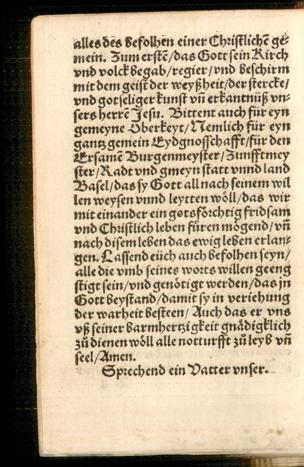 alles des befolhen einer Christlichē ge-
mein. Zum erstē/das Gott sein Kirch
vnd volck begab/regier/vnd beschirm
mit dem geist der weyßheit/der stercke/
vnd gotseliger kunst vñ erkantnüß vn-
sers herrē Jesu. Bittent auch für eyn
gemeyne Oberkeyt/Nemlich für eyn
gantz gemein Eydgnosschafft/für den
Ersamē Burgenmeyster/Zunfftmey
ster/Radt vnd gmeyn statt vnnd land
Basel/das sy Gott all nach seinem wil
len weysen vnnd leytten wöll/das wir
mit einander ein gotsförchtig fridsam
vnd Christlich leben füren mögend/vñ
nach disem leben das ewig leben erlan-
gen. Lassend eüch auch befolhen seyn/
alle die vmb seines worts willen geeng
stigt sein/vnd genötigt werden/das jn
Gott beystand/damit sy in veriehung
der warheit besteen/Auch das er vns
vß seiner barmhertzigkeit gnädigklich
zů dienen wöll alle notturfft zů leyb vñ
seel/Amen.
Sprechend ein Vatter vnser.